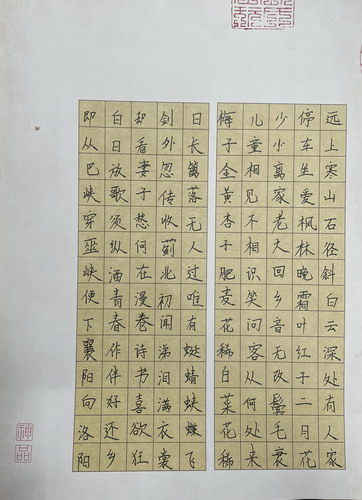 远上寒山石径斜白云深处有人家
停车坐爱枫林晚霜叶红于二月花
少小离家老大回乡音无改鬓毛衰
儿童相见不相识笑问客从何处来
梅子金黄杏子肥麦花稀白菜花稀
日长篱落无人过唯有蜓蜻蛱蝶飞
剑外忽传收蓟北初闻涕泪满衣裳
却看妻子愁何在漫卷诗书喜欲狂
白日放歌须纵酒青春作伴好还乡
即从巴峡穿巫峡便下襄阳向洛阳
神品